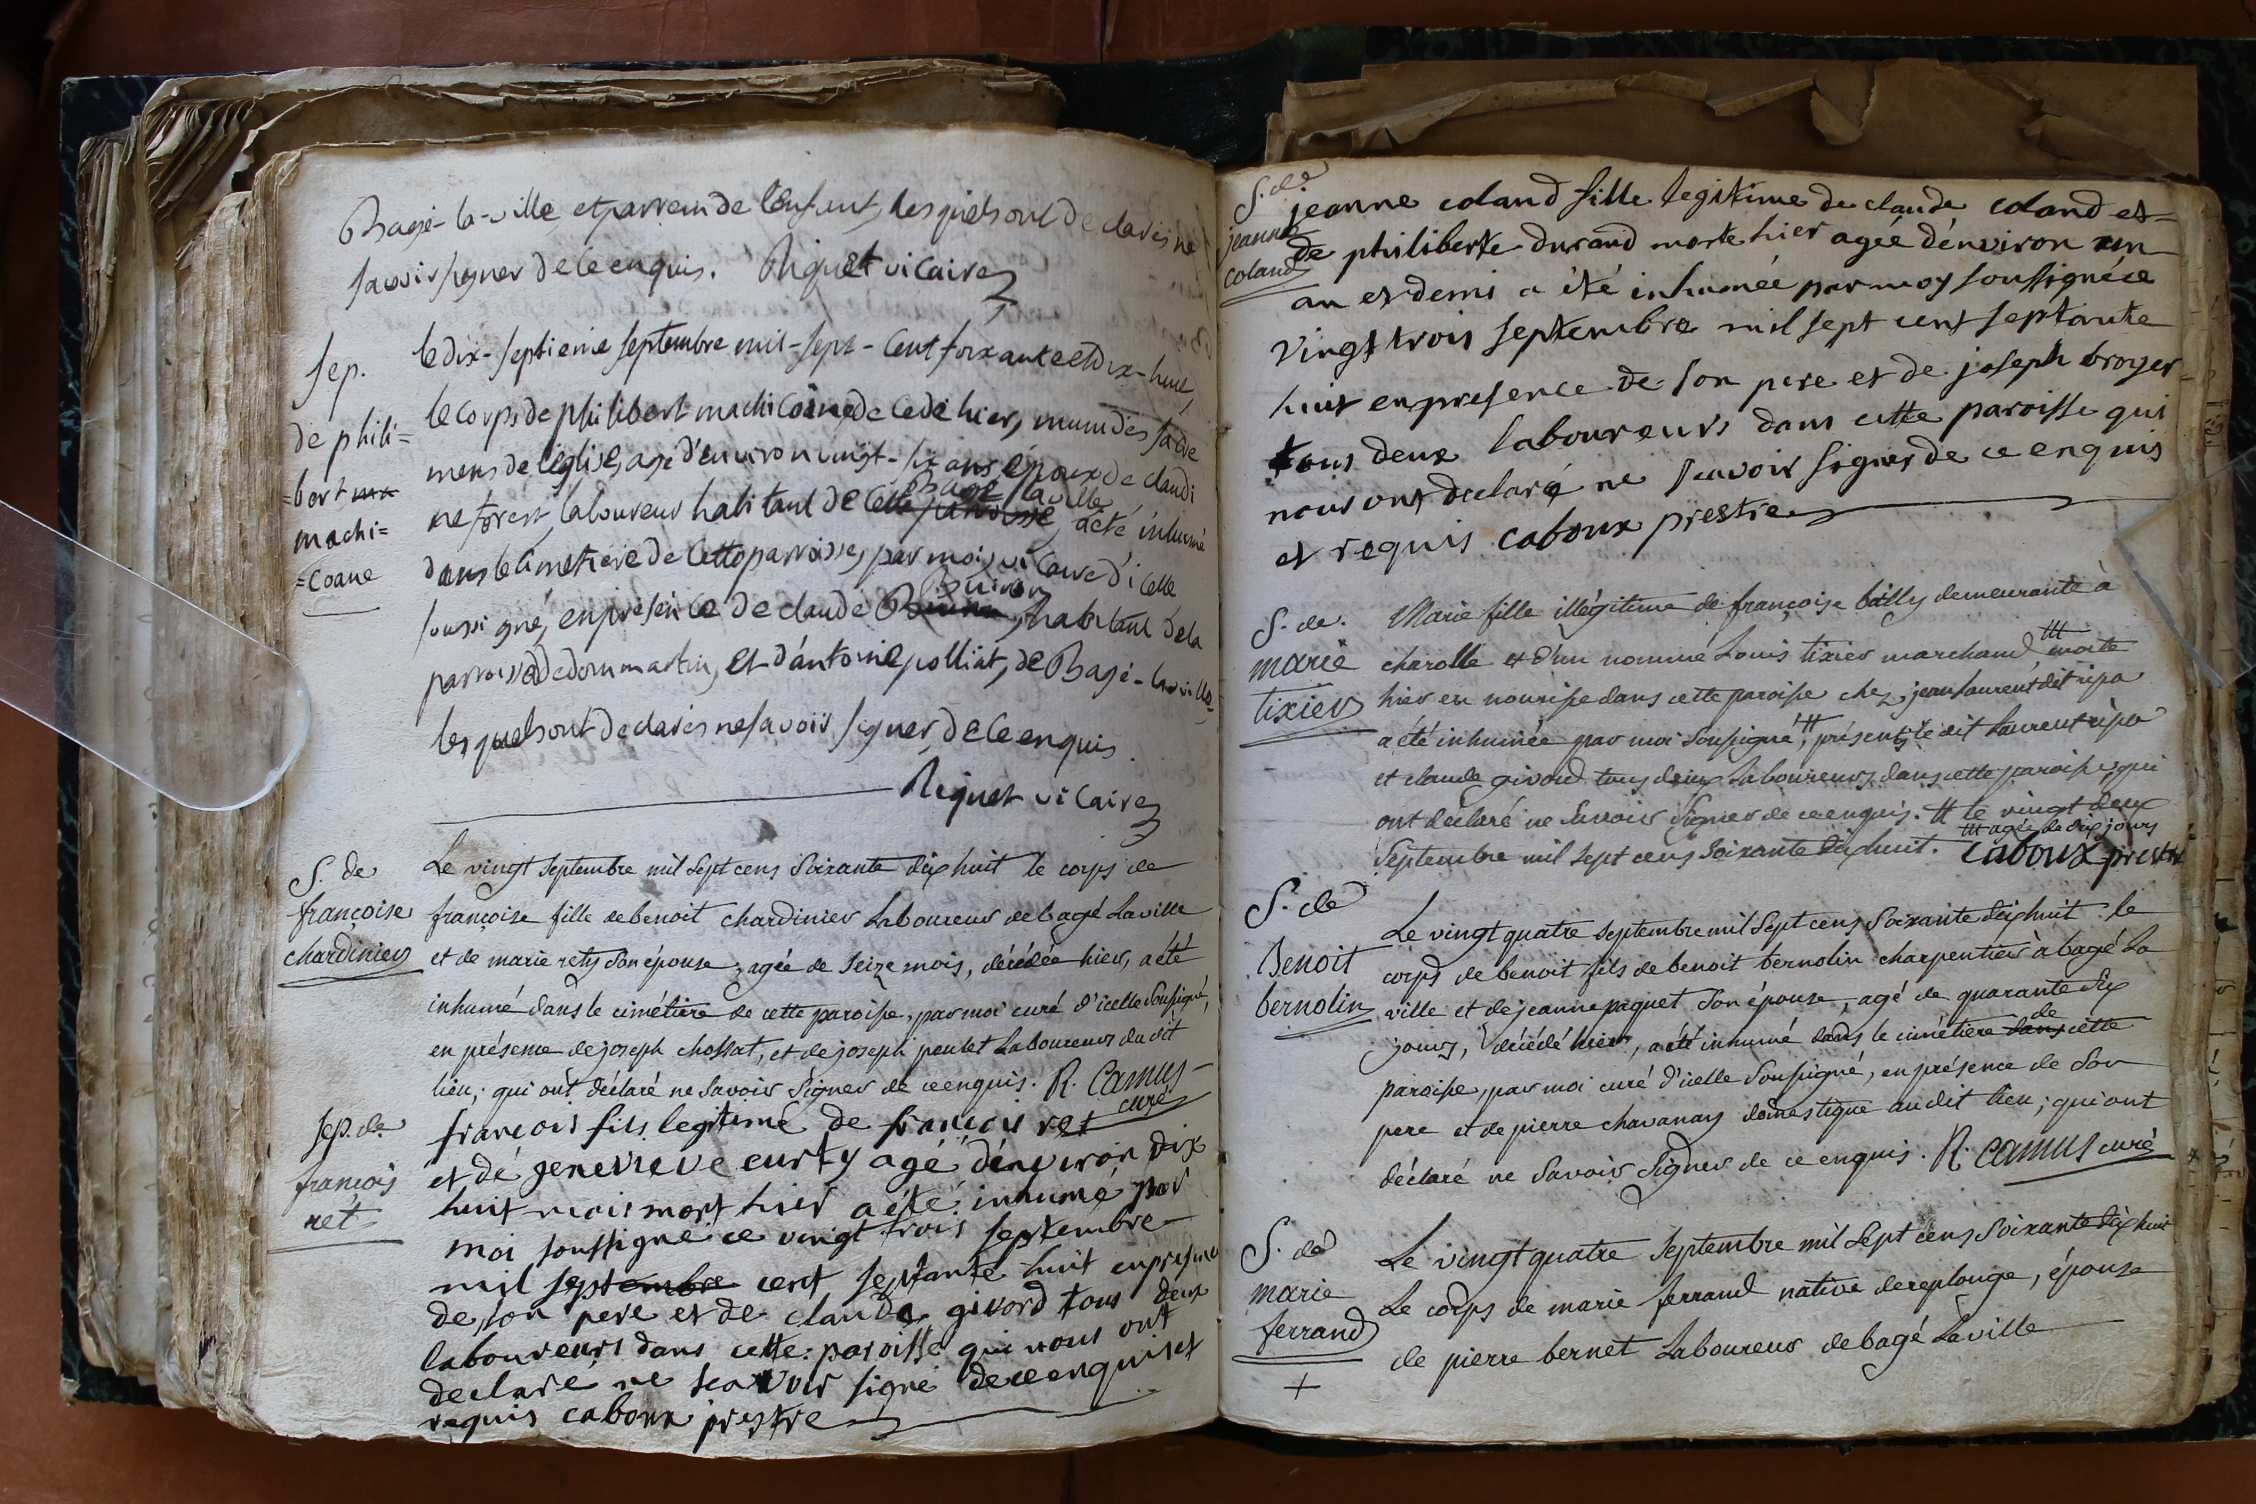 Bagé-la-ville, et parrein de l'enfant, lesquels ont declarés ne
savoir signer de ce enquis. Riquet vicaire
sep.
de phili=
=bert ma
machi=
=coane
le dix-septieme septembre mil-sept-cent soixante et dix-huit,
le corps de philibert machicoane decede hier, muni des sacre
mens de l'eglise, agé d'environ vingt-six ans époux de claudi
ne forest, laboureur habitant de cette parroisse bagé la ville, a été inhumé
dans le cimetiere de cette parroisse, par moi vicaire d'icelle
soussigné, en présence de claude Buiron, habitant de la
parroisse de dommartin, et d'antoine polliat, de Bagé-la ville,
lesquels ont declarés ne savoir signer, de ce enquis
Riquet vicaire
S. de
françoise
chardinier
Le vingt septembre mil sept cens soixante dix huit le corps de
françoise fille de benoit chardinier Laboureur de bagé La ville
et de marie rety son épouse, agée de seize mois, décédée hier, a été
inhumé dans le cimétiere de cette paroisse, par moi curé d'icelle soussigné,
en présence de joseph chossat, et de joseph peulet Laboureurs du dit
lieu; qui ont déclaré ne savoir signer de ce enquis. R. Camus
curé
sep. de
francois
ret
francois fils legitime de francois ret
et de genevieve eurty agé d'environ dix
huit mois mort hier a été inhumé par
moi soussigné ce vingt trois septembre
mil septembre cent septante huit en presence
de son pere et de claude givord tous deux
laboureurs dans cette paroisse qui nous ont
declaré ne scavoir signé de ce enquis et
requis caboux prestre
S. de
jeanne
coland
jeanne coland fille legitime de claude coland et
de philiberte durand morte hier agée d'environ un
an et demi a été inhumée par moy soussigné ce
vingt trois septembre mil sept cent septante
huit en presence de son pere et de joseph broyer
tous deux laboureurs dans cette paroisse qui
nous ont declaré ne scavoir signer de ce enquis
et requis caboux prestre
S. de
marie
tixier
Marie fille illégitime de françoise billy demeurante à
charolle et d'un nommé Louis tixier marchand, morte
hier en nourisse dans cette paroisse chez jean laurent dit ripa
a été inhumée par moi soussigné, présents le dit laurent ripa
et claude givord tous deux Laboureurs dans cette paroisse, qui
ont déclaré ne savoir signer de ce enquis. # le vingt deux
septembre mil sept cens soixante dix huit. agée de dix jours
caboux prestre
S. de
Benoit
bernolin
Le vingt quatre septembre mil sept cens soixante dix huit le
corps de benoit fils de benoit bernolin charpentier à bagé La
ville et de jeanne paquet son épouse, agé de quarante dix
jours, décédé hier, a été inhumé dans le cimétiere dans de cette
paroisse, par moi curé d'icelle soussigné, en présence de son
pere et de pierre chavanay domestique au dit lieu; qui ont
déclaré ne savoir signer de ce enquis. R. Camus curé
S. de
marie
ferrand
+
Le vingt quatre septembre mil sept cens soixante dix huit
Le corps de marie ferrand native de replonge, épouse
de pierre bernet Laboureur de bagé La ville